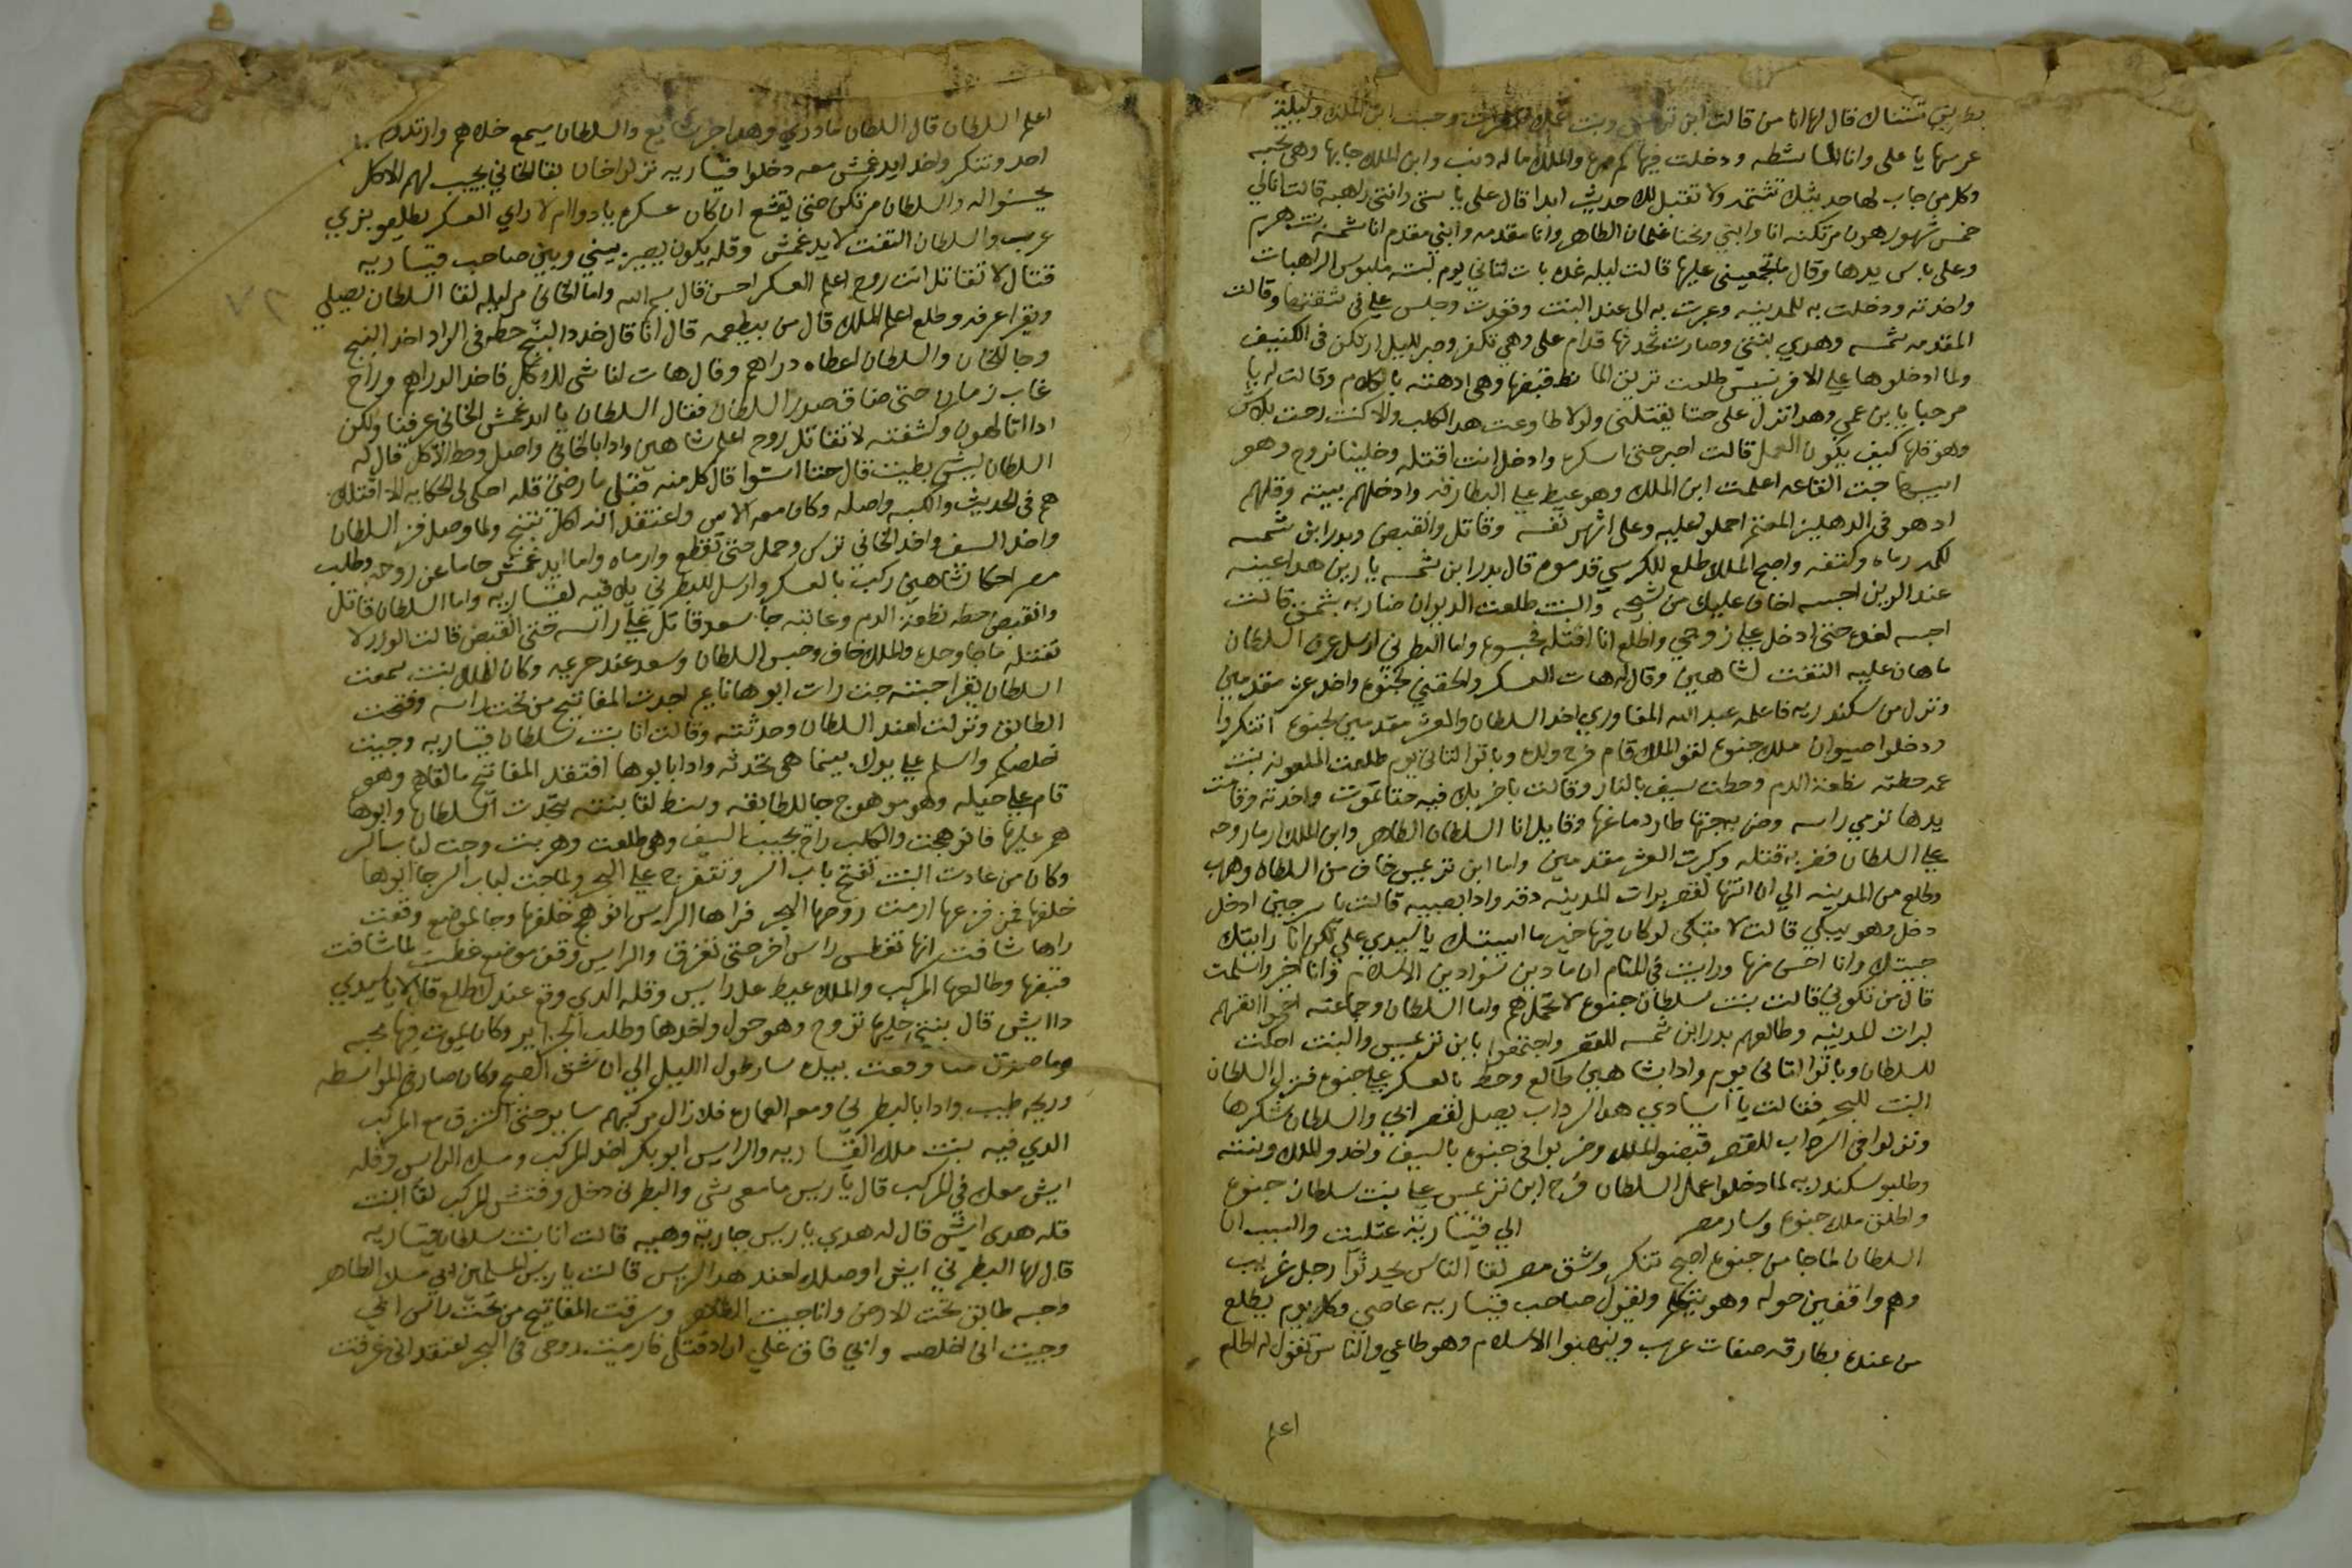 تشتناك قال لها انا من قالت ابن
عرسها يا على وانا الماشطه ودخلت فيها والملك ما له ذنب وابن الملك جابها وهى تحبه
وكل من جاب لها حديثك تشتمه ولا تقبل لك حديث ابدا قال على يا ستى وانتى راهبه قالت انا لي
خمس شهور هون مرتكنه انا وابني ونحنا غلمان الظاهر وانا مقدمه وابني مقدم انا شمسه
وعلى باس يدها وقال ما تجمعينى عليها قالت ليله غده بات لتاني يوم لبسته ملبوس الراهبات
واخدته ودخلت به للمدينه وعبرت به الى عند البنت وقعدت وجلس على فى شقتها وقالت
المقدمه شمسه وهدي بنتى وصارت تحدتها قدام على وهي تكفر وصبر لليل ارتكن فى الكنيف
ولما ادخلوها على الافرنسيس طلعت تريق الما قبضها وهى ادهنته بالكلام وقالت له يا
مرحبا يا بن عمي وهدا نزل على حتا يقتلنى ولولا طاوعت هدا الكلب والا كنت رحت بلاش
وهو قلها كيف يكون العمل قالت اصبر حتى اسكره وادخل انت اقتله وخلينا نروح وهو
جت القاعه اعلمت ابن الملك وهو عيط على البطارقه وادخلهم بيته وقلهم
ادهو فى الدهليز احملو عليه وعلى اشهر نفسه وقاتل وانقبض وبدر ابن شمسه
لكمه رماه وكتفه واصبح الملك طلع للكرسي قدموه قال بدر ابن شمسه يا رين هدا عينه
عند الرين احبسه اخاف عليك من شيحه والبنت طلعت الديوان ضاربه بشمتى قالت
احبسه لغده حتى ادخل على زوجي واطلع انا اقتله فحبسوه واما البطرني ارسل عرف السلطان
ما هان عليه التفت لشاهين وقال له هات العسكر والحقني لجنوه واخد عشر مقدمين
ونزل من سكندريه فاعلمه عبد الله المغاوري اخد السلطان والعشر مقدمين لجنوه اتنكروا
ودخلوا صيوان ملك جنوه لقو الملك قام فرح ولده وباتو التاني يوم طلعت الملعونه بنت
عمه حطته نطعة الدم وحطت سيف بالنار وقالت باضربك فيه حتا تموت واخدته وقامت
يدها ترمي راسه ومن بجتها طار دماغها وقايل انا السلطان الظاهر وابن الملك ارما روحه
على السلطان فضربه قتله وكبرت العشر مقدمين واما ابن ترعيس خاف من السلطان وهرب
وطلع من المدينه الي ان انتها لقصر برات المدينه دقه وادا بصبيه قالت يا مرحبى ادخل
دخل وهو يبكي قالت لا تبكى لو كان فيها خير ما اسبتك يا سيدي على لكن انا رايتك
جيتك وانا احسن منها ورايت فى المنام ان ما دين سوا دين الاسلام وانا اخر واسلمت
قال من تكوني قالت بنت سلطان جنوه لا تحمل هم واما السلطان وجماعته
لبرات المدينه وطالعهم بدر ابن شمسه للقصر واجتمعوا بابن ترعيس والبنت احكت
للسلطان وباتوا التاني يوم وادا بشاهين طالع وحط بالعسكر على جنوه فنزل السلطان
البنت للبحر فقالت يا اسيادي هدا السرداب يصل لقصر ابي والسلطان شكرها
ونزلوا فى السرداب للقصر قبضو الملك وضربوا فى جنوه بالسيف واخدو الملك وبنته
وطلبو سكندريه لما دخلوا عمل السلطان فرح ابن ترعيس على بنت سلطان جنوه
واطلق ملك جنوه وسار مصر الي قيساريه عتليت والسبب ان
السلطان لما جا من جنوه اصبح تنكر وشق مصر لقا الناس يحدثوا رجل غريب
وهم واقفين حوله وهو يتكلم ويقول صاحب قيساريه عاصي وكل يوم يطلع
من عنده بطارقه صفات عرب وينهبوا الاسلام وهو طاعي والناس تقول له اطلع
اعلم
اعلم السلطان قال السلطان ما دري وهدا والسلطان سمع خلاهم وارتدك
احد وتنكر واخد ايدغمش معه دخلوا قيساريه نزلوا خان بقا الخاني يجيب لهم الاكل
يحسنوا له والسلطان مرتكن حتى يقشع ان كان عسكره يا دوا ام لا راي العسكر يطلعو بزي
عرب والسلطان التفت لايدغمش وقله يكون يصير بيني وبين صاحب قيساريه
قتال لا تقاتل انت روح اعلم العسكر احسن قال بسم الله واما الخاني مر ليله لقا السلطان يصلي
ويقرا عرفه وطلع اعلم الملك قال من بيطعمه قال انا قال خد دا البنج حطه فى الزاد اخد البنج
وجا للخان والسلطان اعطاه دراهم وقال هات لنا شى للاكل فاخد الدراهم وراح
غاب زمان حتى ضاق صدر السلطان فقال السلطان يا ايدغمش الخاني عرفنا ولكن
ادا اتا لهون وكشفته لا تقاتل روح اعلم شاهين وادا بالخاني واصل وحط الاكل قال له
السلطان ليش بطيت قال حتا استوا قال كل منه قبلي ما رضى قله احكى لى الحكايه الا اقتلك
هم فى الحديث والكبسه واصله وكان معه الامر واعتقد انه اكل تبنج ولما وصل فز السلطان
واخد السيف واخد الخاني ترس وحمل حتى تقطع وارماه واما ايدغمش حاما عن روحه وطلب
مصر احكا لشاهين ركب بالعسكر وارسل للبطرني يلاقيه لقيساريه واما السلطان قاتل
وانقبض حطه نطعة الدم وعاتبه جا سعد قاتل على راسه حتى انقبض قالت الوزرا لا
تقتله ما جا وحده والملك خاف وحبس السلطان وسعد عند حريمه وكان للملك بنت سمعت
السلطان يقرا حبته جت رات ابوها نايم اخدت المفاتيح من تحت راسه وفتحت
الطابق ونزلت لعند السلطان وحدثته وقالت انا بنت سلطان قيساريه وجيت
اخلصكم واسلم على يدك بينما هى تحدثه وادا بابوها افتقد المفاتيح ما لقاهم وهو
قام على حيله وهو موهوج جا للطابقه لقا بنته تحدت السلطان وابوها
هجم عليها فانوهجت والكلب راح يجيب السيف وهى طلعت وهربت وجت لباب السر
وكان من عادت البنت تفتح باب السر وتتفرج على البحر ولما جت لباب السر جا ابوها
خلفها فمن فزعها ارمت روحها البحر فراها الرايس انوهج خلفها وجا لموضع وقعت
راها شافت انها تغطس راس اخر حتى تغرق والرايس وقف موضع غطت لما شافت
قبضها وطالعها المركب والملك عيط على الرايس وقله الدي وقع عندك طلع قال لا يا سيدي
دا ايش قال بنتي خليها تروح وهو حول واخدها وطلب الجزاير وكان يموت فيها محبه
وما صدق متا وقعت بيده سار طول الليل الي ان شق الصبح وكان صار فى المواسطه
وريحه طيب وادا بالبطرني ومعه العماره فلا زال مركبهم سايره حتى التزق مع المركب
الدي فيه بنت ملك القيساريه والرايس ابو بكر اخد المركب ومسك الرايس وقله
ايش معك فى المركب قال يا ريس ما معى شى والبطرني دخل وفتش المركب لقا البنت
قله هدى ايش قال له هدي يا ريس جاريه وهيه قالت انا بنت سلطان قيساريه
قال لها البطرني ايش اوصلك لعند هدا الريس قالت يا ريس المسلمين ابي مسك الظاهر
وحبسه طابق تحت الارض وانا حبيت الظاهر وسرقت المفاتيح من تحت راس ابي
وجيت انى اخلصه وابي فاق علي اراد قتلى فارميت روحى فى البحر اعتقد انى غرقت